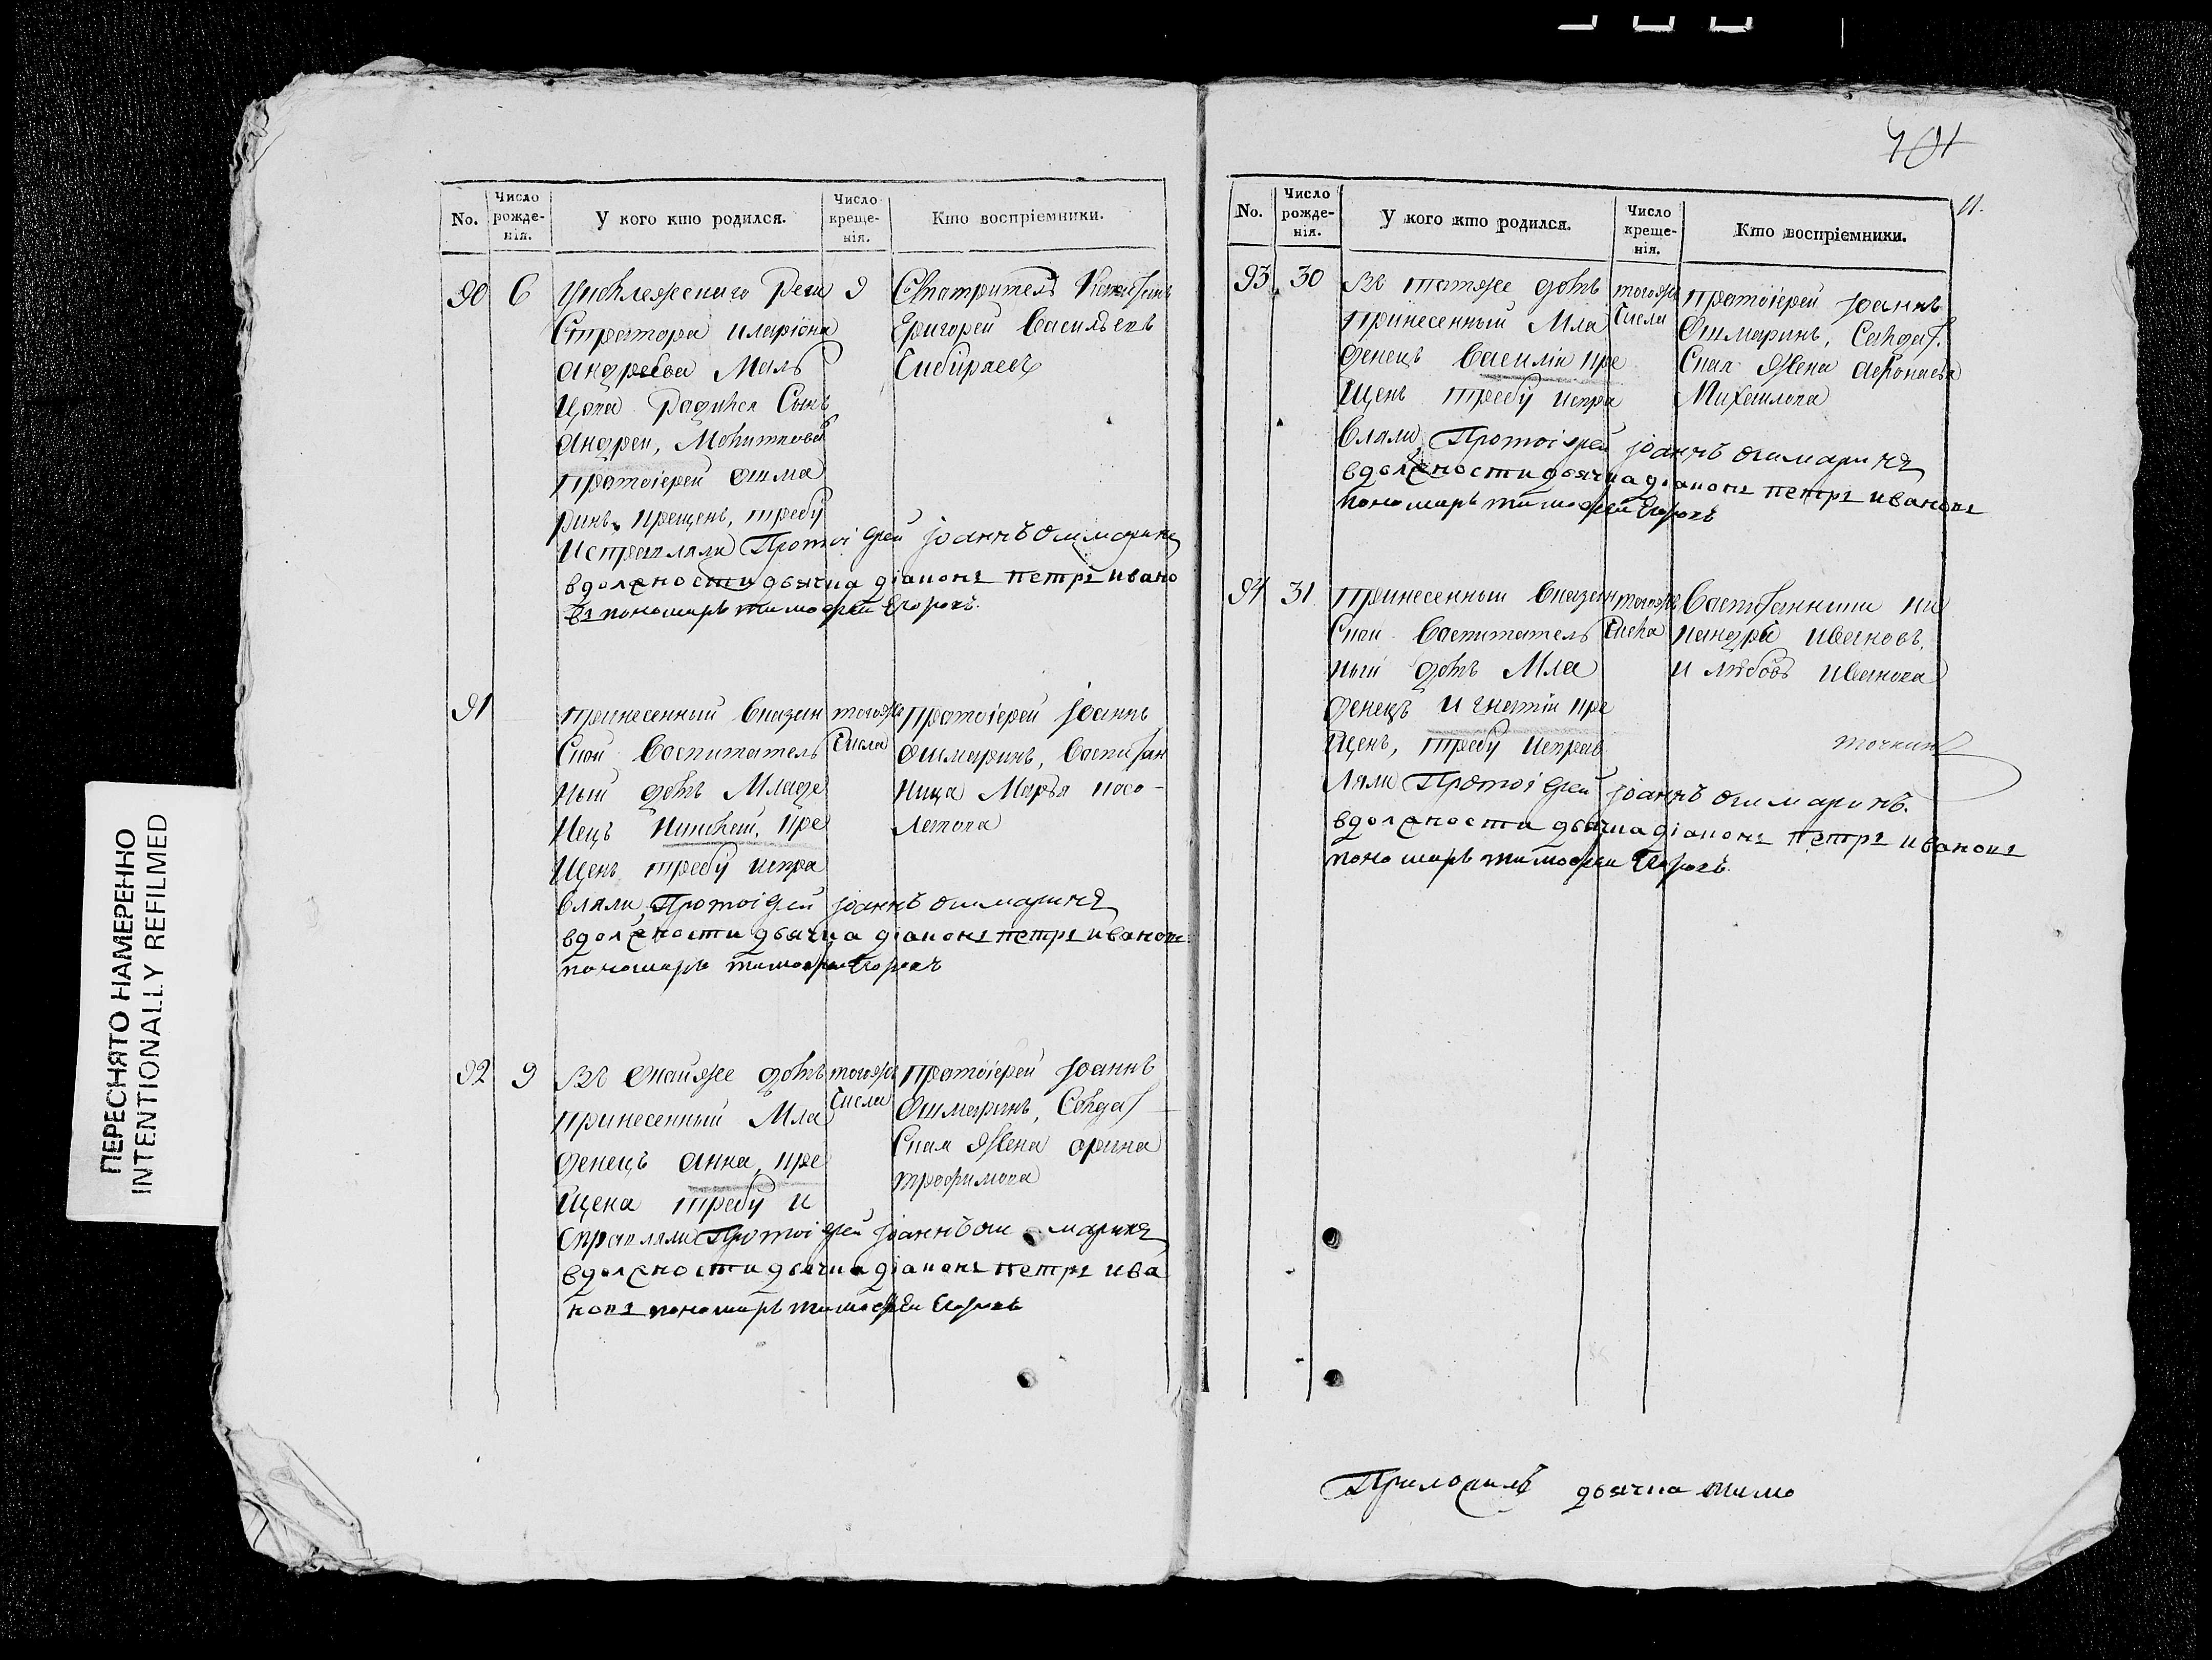 ПЕРЕСНЯТО НАМЕРЕННО
INTENTIONALLY REFILMED
No.
Число рожде-нія.
У кого кто родился.
Число креще-нія.
Кто воспріемники.
90
6
Реги
Стратора иларіона
андреева Маль
Цова Родился Сынъ
Андреи, Молитвовалъ
протоіерей ошма
ринъ, крещенъ, требу
исправляли Протоіерей іоаннъ ошмаринъ
в должности дьячка діаконъ петръ ивано
въ пономарь тимофей Егоровъ.
9
Смотритель
Григорей Васильевъ
Сибиряевъ
91
принесенный въказен
Спои Воспитатель
ный домъ Младе
нецъ крe
щенъ требу испра
вляли, Протоіерей іоаннъ ошмаринъ
в должности дьячка діаконъ петръ ивановъ
пономарь тимофей Егоровъ
тогожъ
Числа
протоіерей іоаннъ
ошмаринъ, Воспитан
ница Марья
92
9
Въ онайже домъ
принесенный Мла
денецъ анна, кре
щена требу и
справляли Протоіерей іоаннъ ошмаринъ
в должности дьячка діаконъ петръ ива
новъ пономарь тимофей Егоровъ
тогожъ
Числа
протоіерей іоаннъ
Ошмаринъ, Солдат
Ская Жена орина
трофимова
401
11.
No.
Число рожде-нія.
У кого кто родился.
Число креще-нія.
Кто воспріемники.
93
30
Въ тотже домъ
принесенный Мла
денецъ Василіи кре
щенъ требу испра
вляли, Протоіерей іоаннъ ошмаринъ
в должности дьячка діаконъ петръ ивановъ
пономарь тимофей Егоровъ
тогожъ
Числа
протоіерей іоаннъ
Ошмаринъ, Солдат.
Ская Жена афонасья
Михаилова
94
31
принесенныи въказен
Спои Воспитатель
ныи домъ Мла
денецъ Игнатіи кре
щенъ, требу исправ
ляли Протоіерей іоаннъ ошмаринъ.
в должности дьячка діаконъ петръ ивановъ
пономарь тимофей Егоровъ.
тогожъ
Числа
Воспитанники ни
кандръ Ивановъ,
и любовь Иванова
Приложилъ дьячка тимо